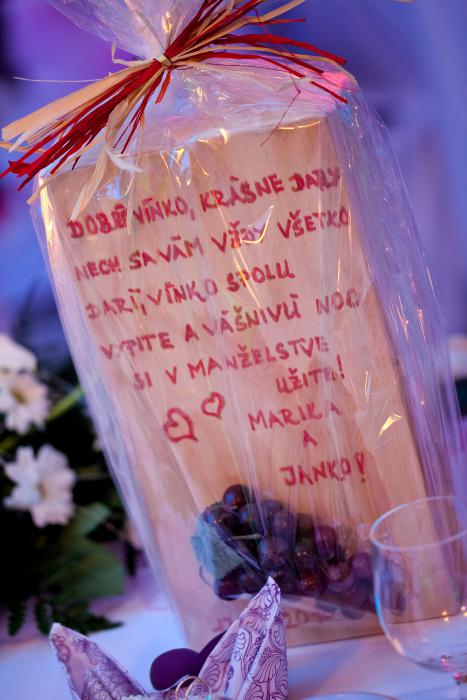 DOBRÉ VÍNKO, KRÁSNE DARY
NECH SA VÁM VŽDY VŠETKO
DARÍ, VÍNKO SPOLU
VYPITE A VÁŠNIVÚ NOC
SI V MANŽELSTVE
UŽITE!
MARIKA
A
JANKO!